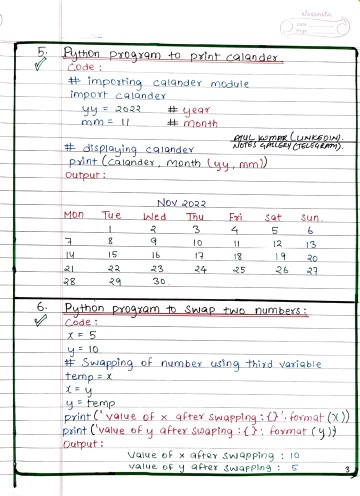 5. Python program to print calander
Code :
# importing calander module
import calander
yy = 2022 # year
mm = 11 # month
ATUL KUMAR (LINKEDIN).
NOTES GALLERY (TELEGRAM).
# displaying calander
print (calander, month (yy, mm))
output :
NOV 2022
Mon Tue Wed Thu Fri Sat Sun.
1 2 3 4 5 6
7 8 9 10 11 12 13
14 15 16 17 18 19 20
21 22 23 24 25 26 27
28 29 30
6. Python program to swap two numbers :
Code :
x = 5
y = 10
# Swapping of number using third variable
temp = x
x = y
y = temp
print ('value of x after swapping : {}'. format (x))
print ('value of y after swaping : {}: format (y))
Output :
value of x after swapping : 10
value of y after swapping : 5
3